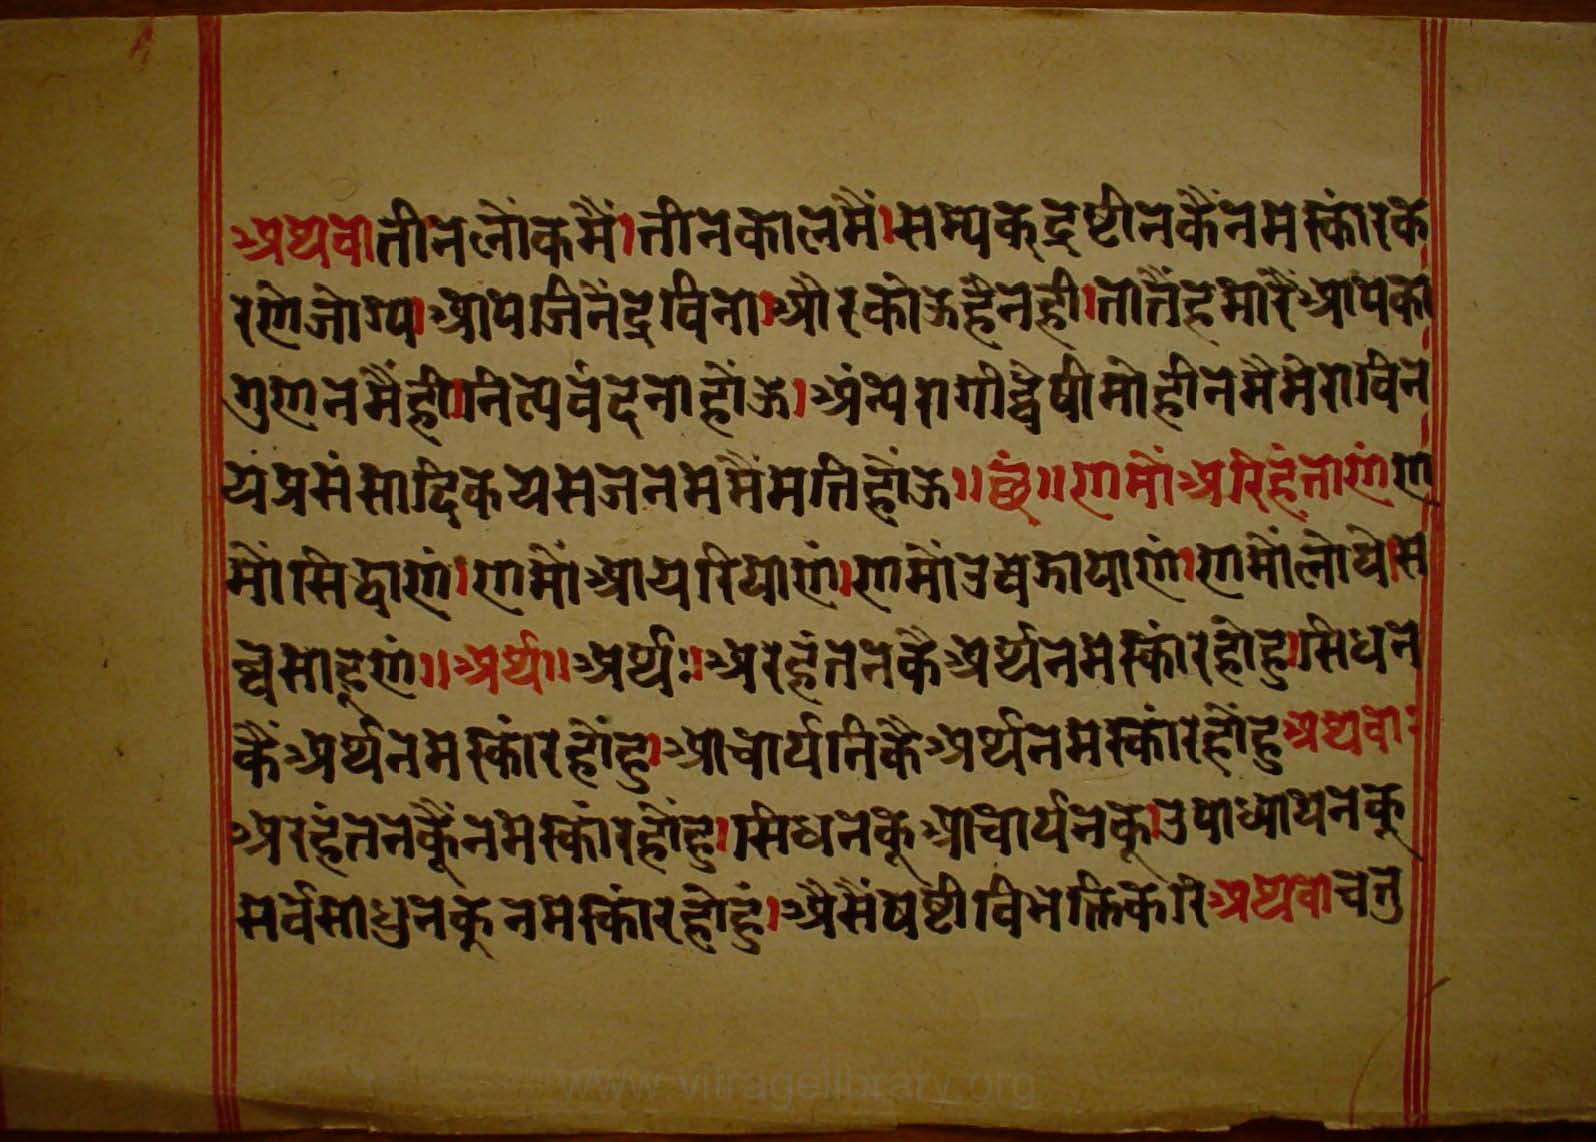 अथवा तीनलौंकमैं।तीनकालमैं।सम्यकद्रष्टीनकैंनमस्कांरक
रणेजोग्य।आपजिनेंद्रविना।औरकोऊहैनही।तातैंहमारैंआपका
गुणनमैंही।नित्यवंदनाहौंऊ।अंन्यरागीद्वेषीमोहीनमैमेराविन
यंप्रसंसादिकयसजनममैंमतिहौंऊ॥छं॥णमौंअरिहंताणंण
मौंसिद्वाणं।णमौंआयरियाणं।णमौंउवझायाणं।णमौंलोये।स
व्वसाहूणं॥अर्थ॥अर्थः।अरहंतनकैअर्थनमस्कांरहोहु।सिधन
कैंअर्थनमस्कांरहौंहु।आचार्यनिकैअर्थनमस्कांरहौंहुअथवाः
अरहंतनकूंनमस्कांरहौंहु।सिधनकूआचार्यनकू।उपाध्यायनकू
सर्वसाधुनकूनमस्कांरहोहुं।औसैंषष्टीविभक्तिकरिअथवाचतु
www.vitragelibrary.org